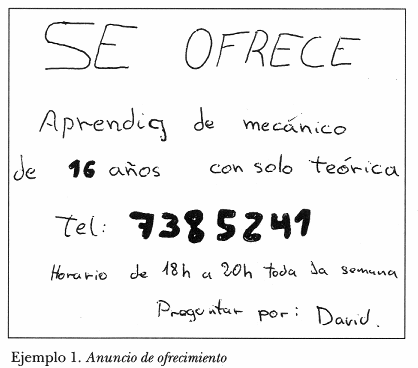 SE OFRECE
Aprendiz de mecánico
de 16 años con solo teórica
Tel: 7385241
Horario de 18h a 20h toda la semana
Preguntar por: David.
Ejemplo 1. Anuncio de ofrecimiento